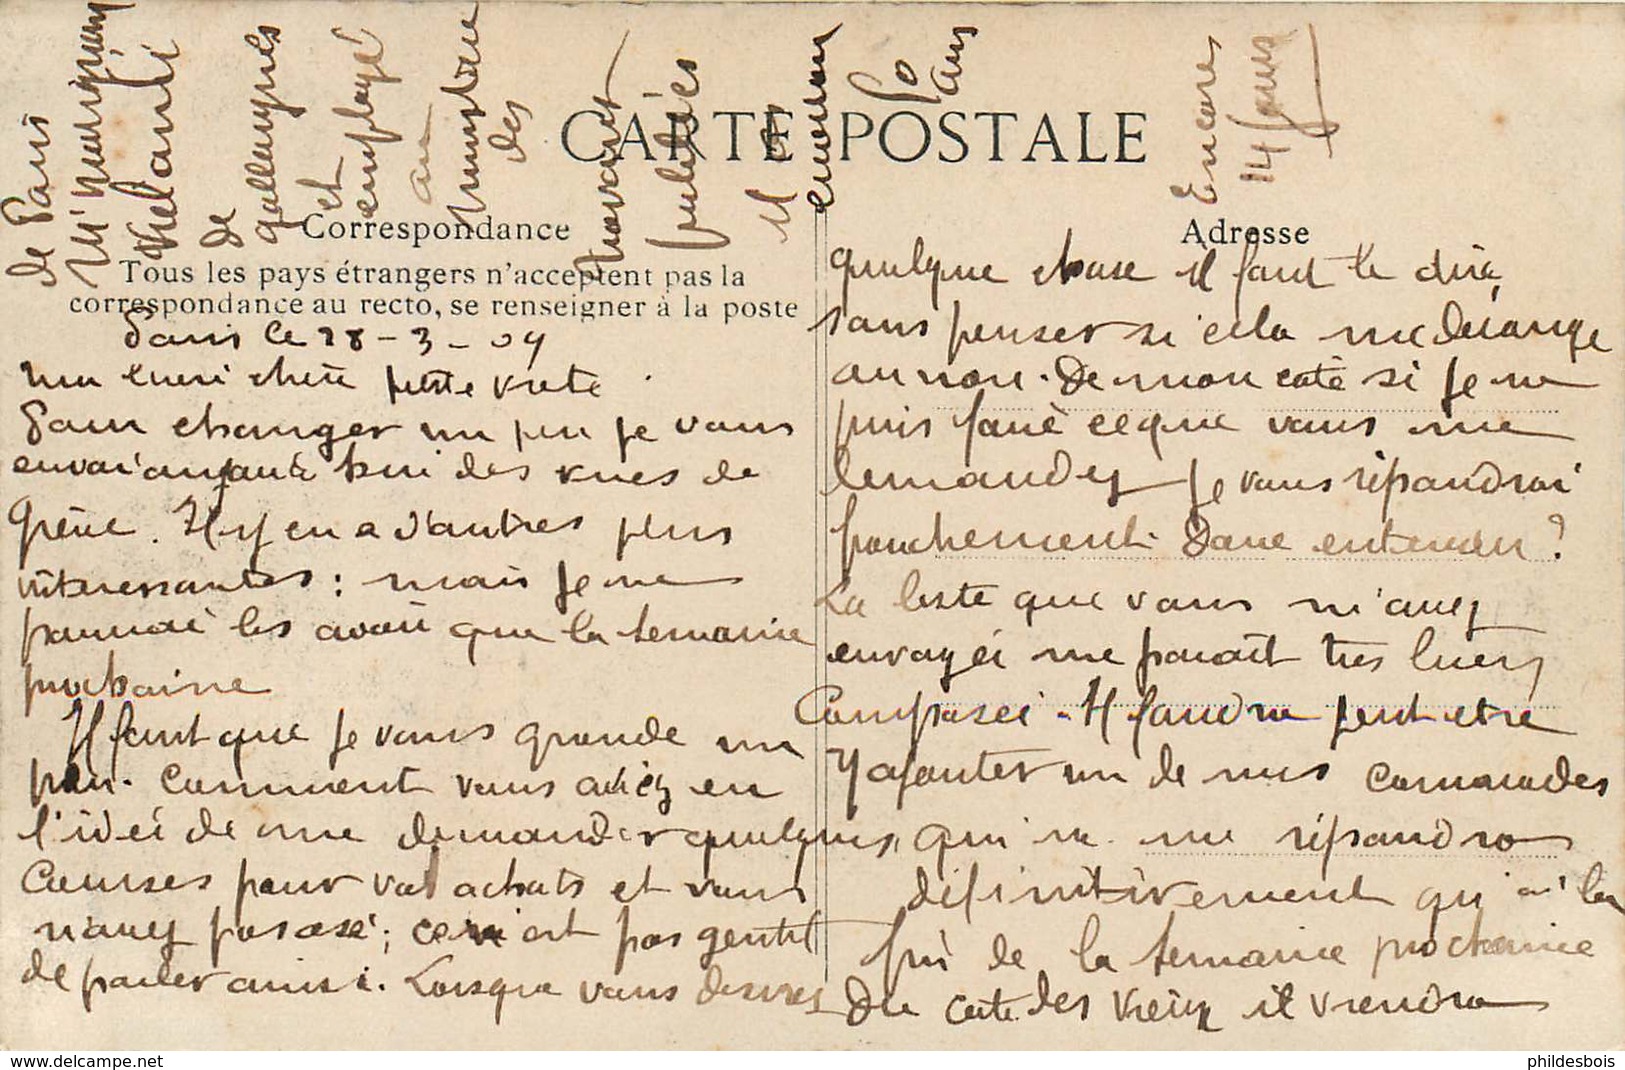 CARTE POSTALE
Correspondance
Adresse
Tous les pays étrangers n'acceptent pas la
correspondance au recto, se renseigner à la poste
Paris le 28-3-09
ma chérie petite
Pour changer un peu je vous
envoi aujourd'hui des vues de
grève. Il y en a d'autres plus
intéressantes : mais je ne
pourrai les avoir que la semaine
prochaine
Il faut que je vous gronde un
peu. Comment vous aviez en
l'idée de me demander quelques
courses pour vos achats et vous
n'avez pas osé ; ce n'est pas gentil
de parler ainsi. Lorsque vous desirez
quelque chose il faut le dire,
sans penser si cela me dérange
ou non. De mon coté si je ne
puis faire ce que vous me
demandez je vous répondrai
franchement. Donc entendu ?
La liste que vous m'avez
envoyée me parait très bien
Composée. Il faudra peut etre
y ajouter un de mes camarades
qui ne me répondra
définitivement qu'a la
fin de la semaine prochaine
Du coté des vieux il viendra
de Paris
M'
de
et employé
au ministère
des
travaux
publics
Il a
environ
50
ans
Encore
14 jours
www.delcampe.net
phildesbois